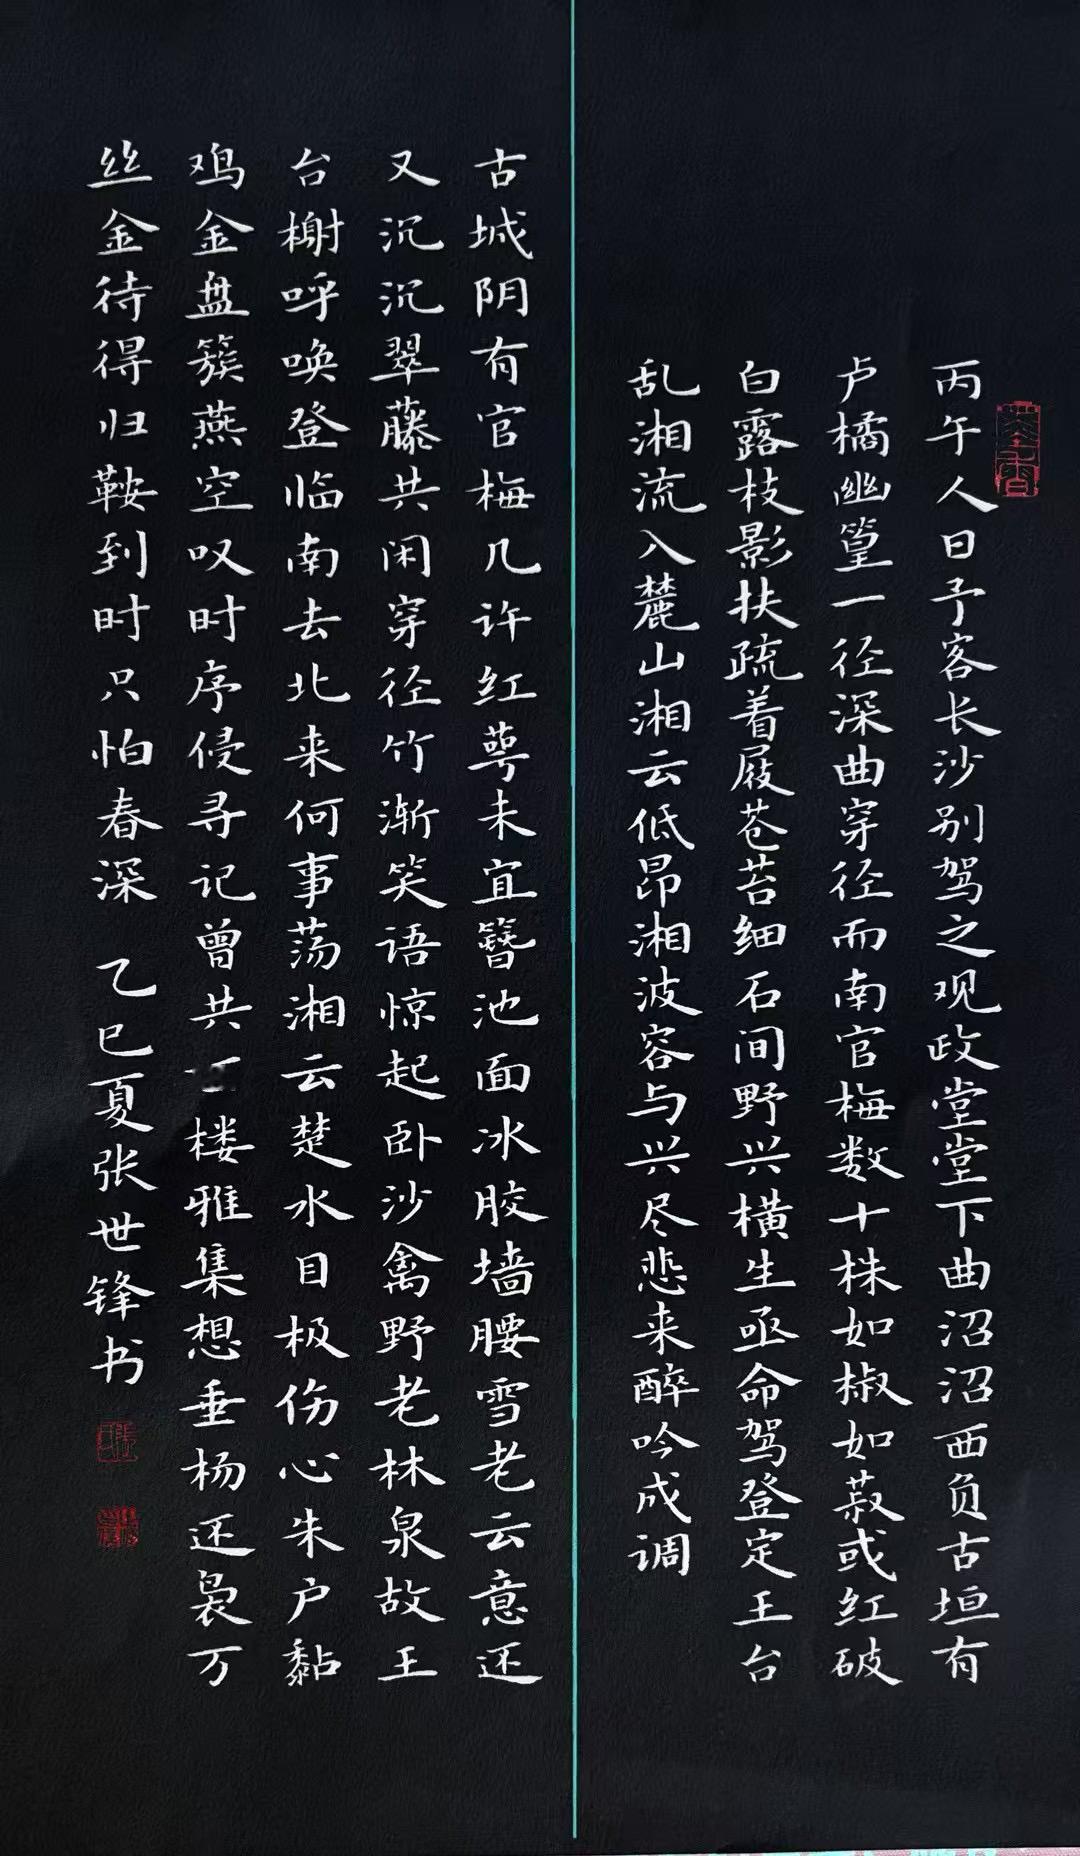 丙午人日予客长沙别驾之观政堂堂下曲沼沼西负古垣有
卢橘幽篁一径深曲穿径而南官梅数十株如椒如菽或红破
白露枝影扶疏着屐苍苔细石间野兴横生亟命驾登定王台
乱湘流入麓山湘云低昂湘波容与兴尽悲来醉吟成调
古城阴有官梅几许红萼未宜簪池面冰胶墙腰雪老云意还
又沉沉翠藤共闲穿径竹渐笑语惊起卧沙禽野老林泉故王
台榭呼唤登临南去北来何事荡湘云楚水目极伤心朱户黏
鸡金盘簇燕空叹时序侵寻记曾共楼雅集想垂杨还袅万
丝金待得归鞍到时只怕春深 乙巳夏张世锋书